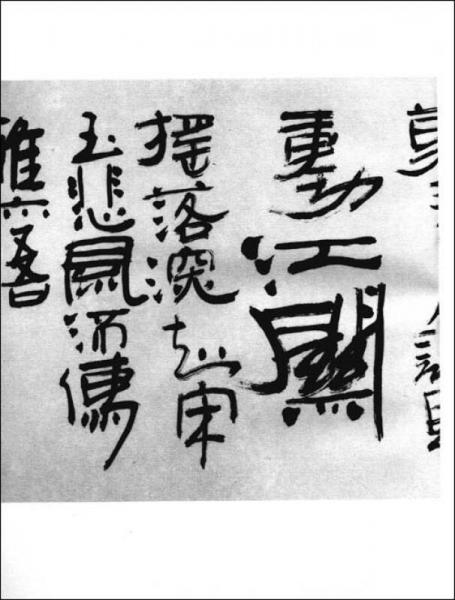 動江關
搖落深知宋
玉悲風流儒
雅亦吾